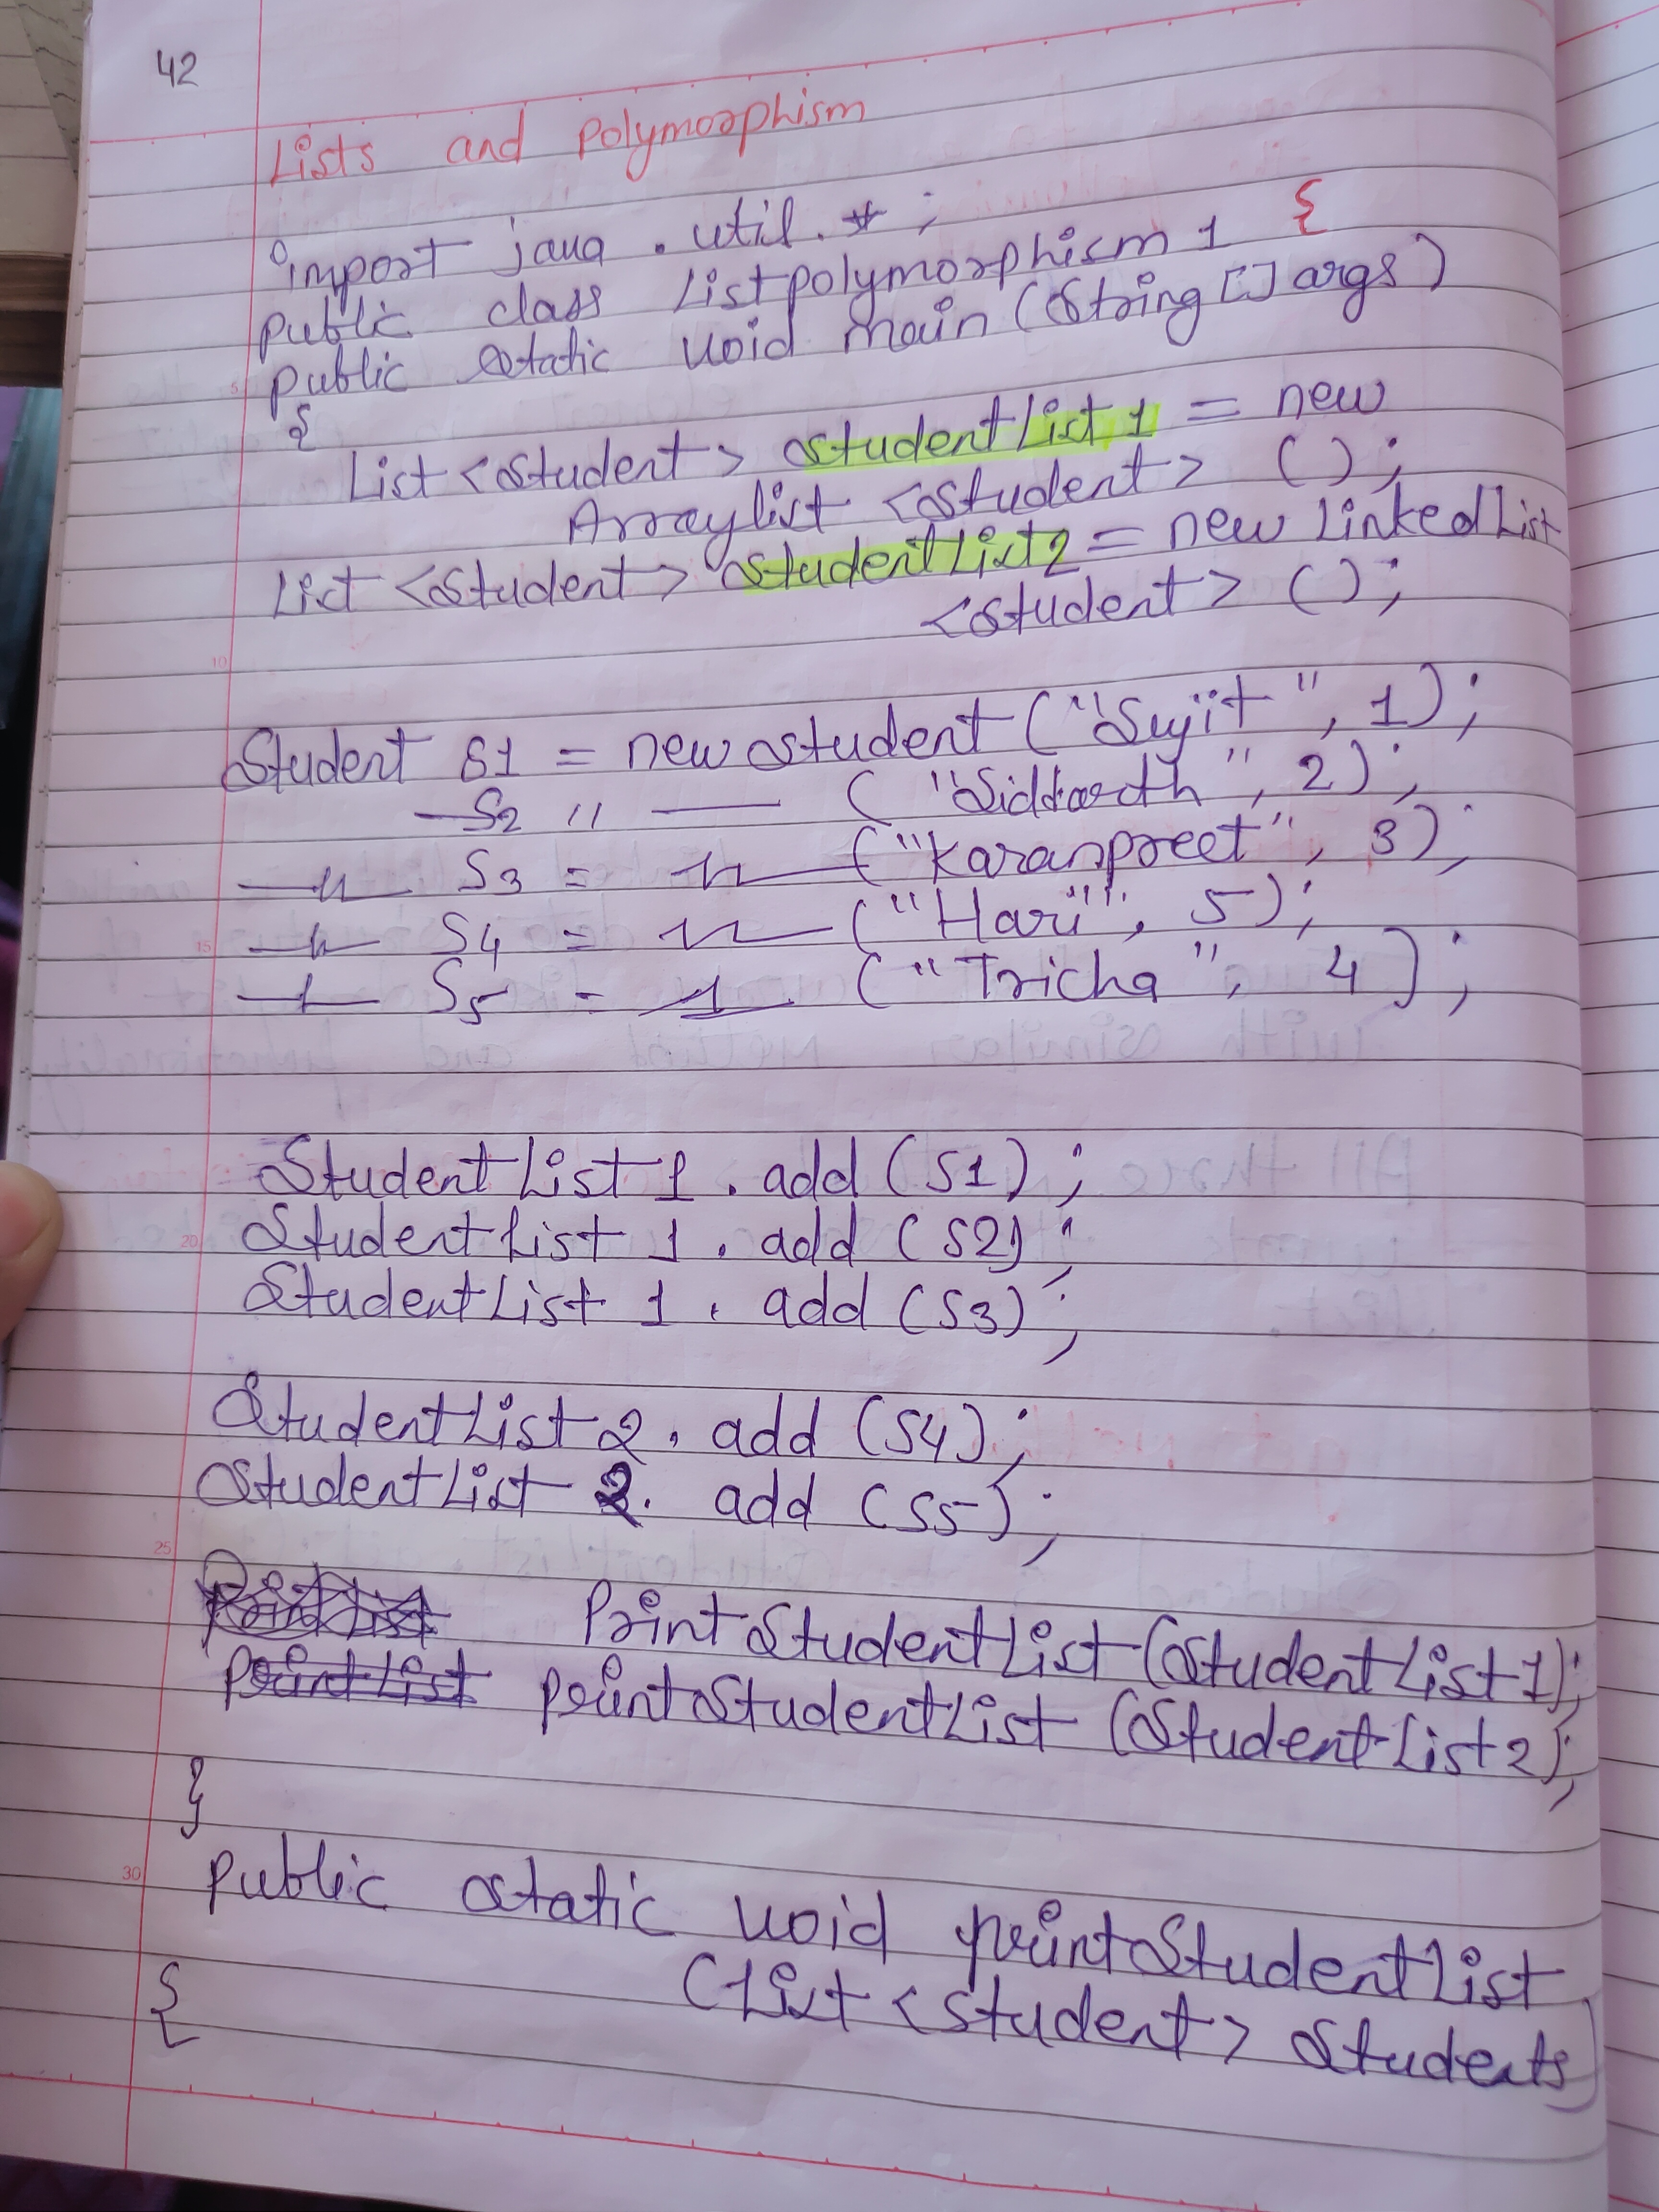 42
Lists and polymorphism
import java . util . * ;
public class Listpolymorphism 1 {
public static void main (String [] args)
{
List <student> studentList 1 = new
Arraylist <student> ( ) ;
List <student> studentList2 = new LinkedList
<student> ( ) ;
Student S1 = new student ("Sujit", 1) ;
— S2 " —— ( "Siddarth", 2) ;
—"— S3 = —"— ("Karanpreet", 3) ;
—"— S4 = —"— ("Hari", 5) ;
—"— S5 = —"— ("Tricha", 4 ) ;
StudentList 1 . add (S1) ;
StudentList 1 . add (S2) ;
StudentList 1 . add (S3) ;
StudentList 2 . add (S4) ;
StudentList 2 . add (S5) ;
PrintStudentList (StudentList 1) ;
printStudentList (StudentList 2) ;
}
public static void printStudentList
(List <student> Students)
{
5
10
15
20
25
30